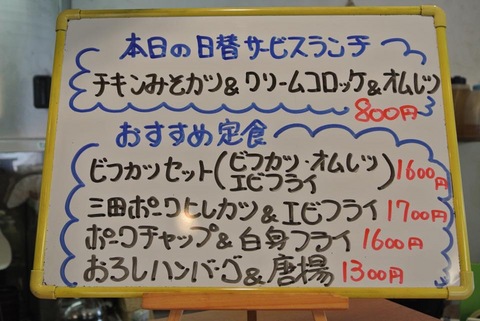 本日の日替サービスランチ
チキンみそカツ&クリームコロッケ&オムレツ
800円
おすすめ定食
ビフカツセット(ビフカツ・オムレツ エビフライ) 1600円
三田ポークヒレカツ&エビフライ 1700円
ポークチャップ&白身フライ 1600円
おろしハンバーグ&唐揚 1300円